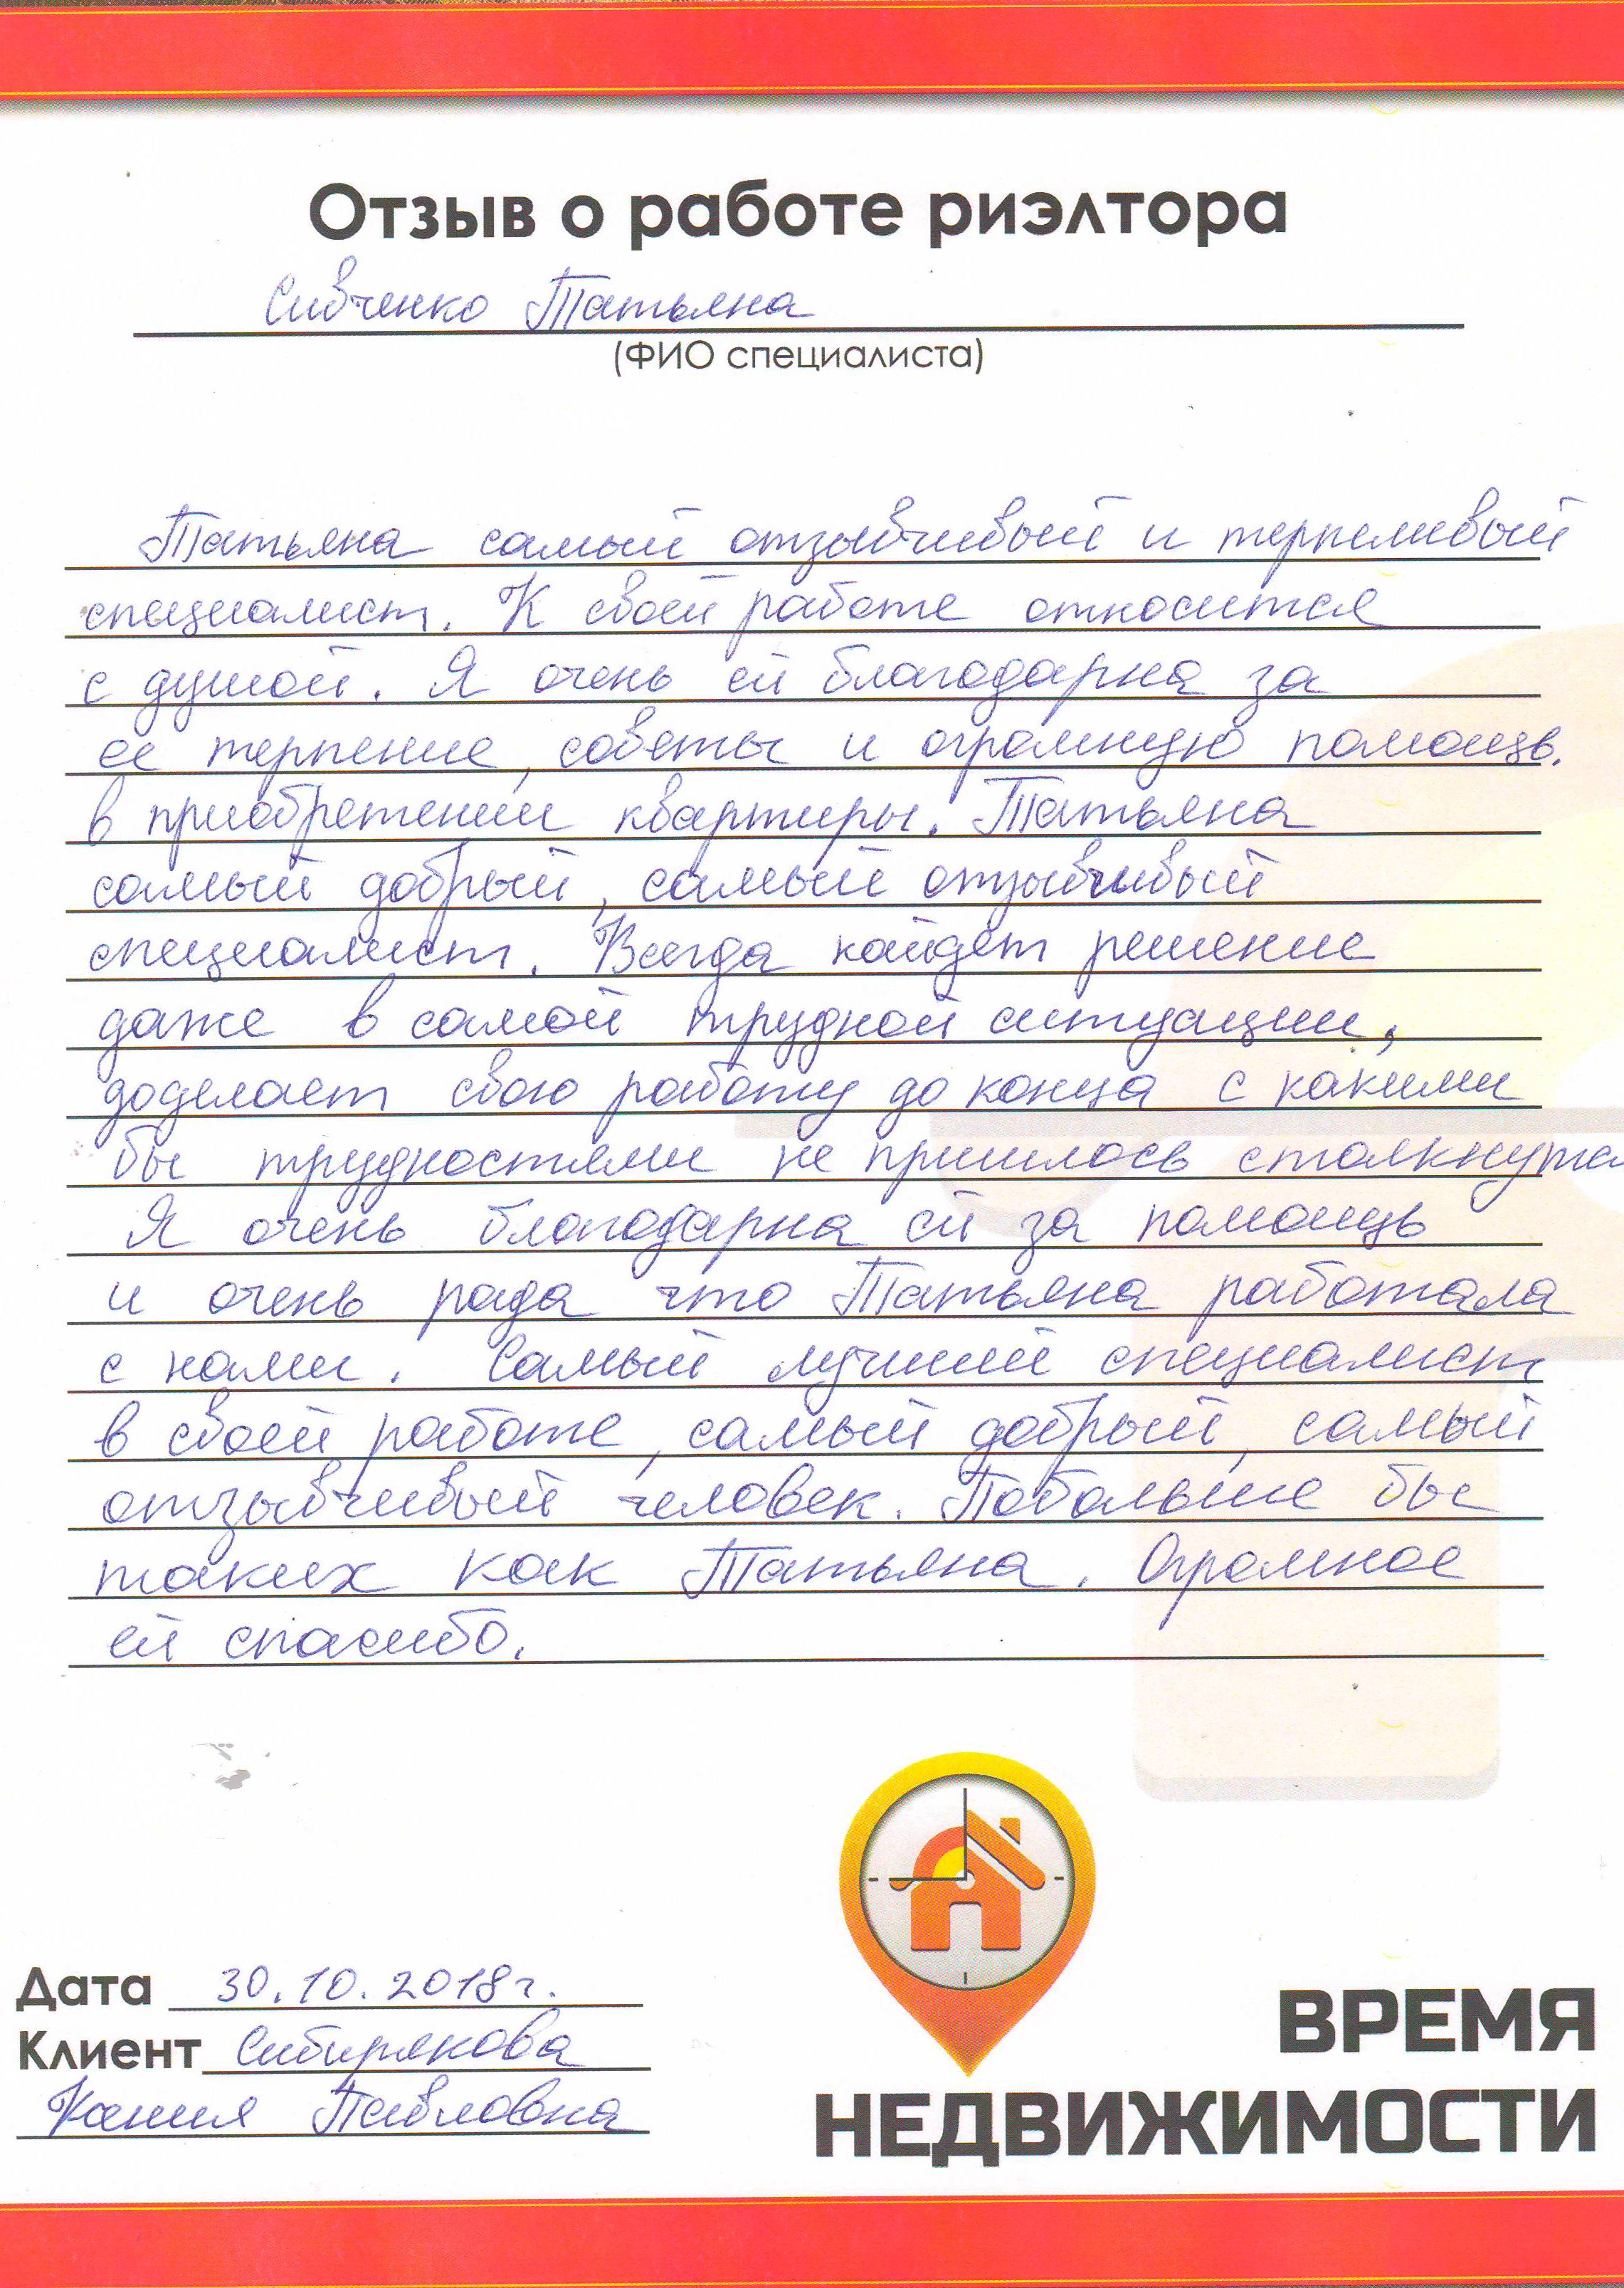 Отзыв о работе риэлтора
Сивченко Татьяна
(ФИО специалиста)
Татьяна самый отзывчивый и терпеливый
специалист. К своей работе относится
с душой. Я очень ей благодарна за
ее терпение, советы и огромную помощь.
в приобретении квартиры. Татьяна
самый добрый, самый отзывчивый
специалист. Всегда найдет решение
даже в самой трудной ситуации,
доделает свою работу до конца с какими
бы трудностями не пришлось столкнутся
Я очень благодарна ей за помощь
и очень рада что Татьяна работала
с нами. Самый лучший специалист
в своей работе, самый добрый, самый
отзывчивый человек. Побольше бы
таких как Татьяна. Огромное
ей спасибо.
Дата 30.10.2018г.
Клиент Сибирякова
Ксения Павловна
ВРЕМЯ
НЕДВИЖИМОСТИ